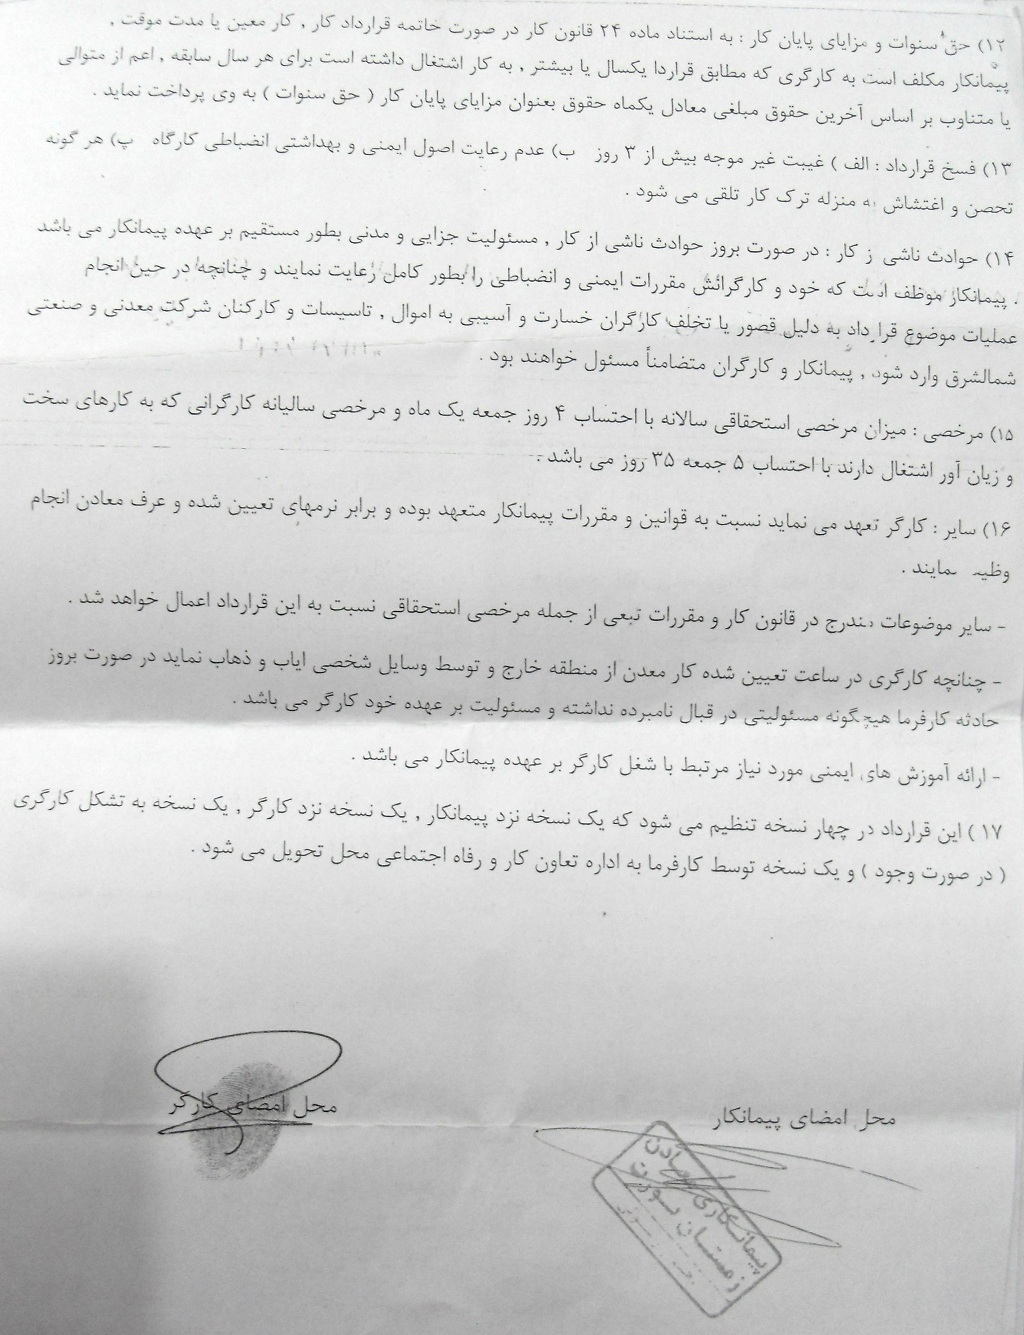 ۱۲) حق سنوات و مزایای پایان کار : به استناد ماده ۲۴ قانون کار در صورت خاتمه قرارداد کار , کار معین یا مدت موقت ,
پیمانکار مکلف است به کارگری که مطابق قراردا یکسال یا بیشتر , به کار اشتغال داشته است برای هر سال سابقه , اعم از متوالی
یا متناوب بر اساس آخرین حقوق مبلغی معادل یکماه حقوق بعنوان مزایای پایان کار ( حق سنوات ) به وی پرداخت نماید .
۱۳) فسخ قرارداد : الف ) غیبت غیر موجه بیش از ۳ روز ب) عدم رعایت اصول ایمنی و بهداشتی انضباطی کارگاه پ) هر گونه
تحصن و اغتشاش به منزله ترک کار تلقی می شود .
۱۴) حوادث ناشی از کار : در صورت بروز حوادث ناشی از کار , مسئولیت جزایی و مدنی بطور مستقیم بر عهده پیمانکار می باشد
. پیمانکار موظف است که خود و کارگرانش مقررات ایمنی و انضباطی را بطور کامل رعایت نمایند و چنانچه در حین انجام
عملیات موضوع قرارداد به دلیل قصور یا تخلف کارگران خسارت و آسیبی به اموال , تاسیسات و کارکنان شرکت معدنی و صنعتی
شمالشرق وارد شود , پیمانکار و کارگران متضامناً مسئول خواهند بود .
۱۵) مرخصی : میزان مرخصی استحقاقی سالانه با احتساب ۴ روز جمعه یک ماه و مرخصی سالیانه کارگرانی که به کارهای سخت
و زیان آور اشتغال دارند با احتساب ۵ جمعه ۳۵ روز می باشد .
۱۶) سایر : کارگر تعهد می نماید نسبت به قوانین و مقررات پیمانکار متعهد بوده و برابر نرمهای تعیین شده و عرف معادن انجام
وظیفه نمایند .
- سایر موضوعات مندرج در قانون کار و مقررات تبعی از جمله مرخصی استحقاقی نسبت به این قرارداد اعمال خواهد شد .
- چنانچه کارگری در ساعت تعیین شده کار معدن از منطقه خارج و توسط وسایل شخصی ایاب و ذهاب نماید در صورت بروز
حادثه کارفرما هیچگونه مسئولیتی در قبال نامبرده نداشته و مسئولیت بر عهده خود کارگر می باشد .
- ارائه آموزش های ایمنی مورد نیاز مرتبط با شغل کارگر بر عهده پیمانکار می باشد .
۱۷ ) این قرارداد در چهار نسخه تنظیم می شود که یک نسخه نزد پیمانکار , یک نسخه نزد کارگر , یک نسخه به تشکل کارگری
( در صورت وجود ) و یک نسخه توسط کارفرما به اداره تعاون کار و رفاه اجتماعی محل تحویل می شود .
محل امضای پیمانکار
محل امضای کارگر
پیمانکاری معادن
زمستان یورت